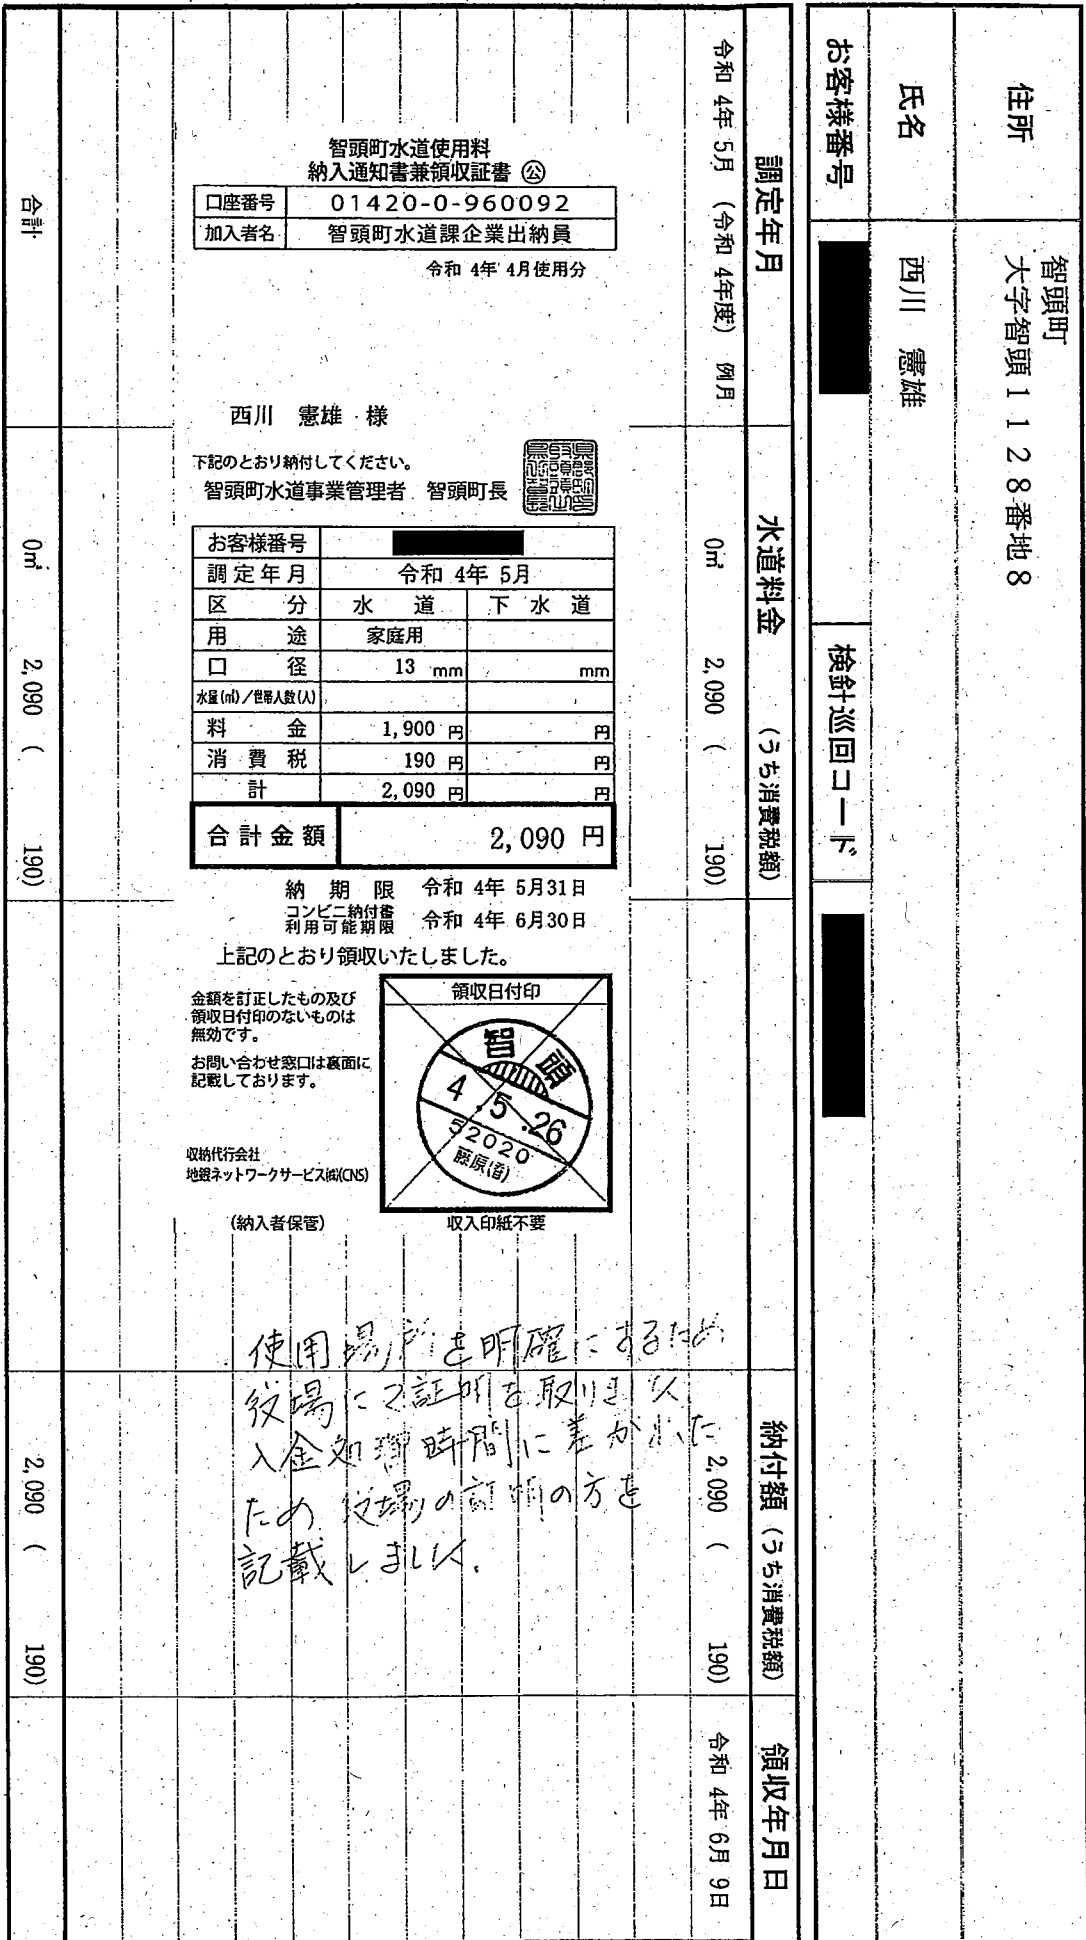 住所
智頭町
大字智頭1128番地8
氏名
西川 憲雄
お客様番号
検針巡回コード
調定年月
水道料金 (うち消費税額)
納付額 (うち消費税額)
領収年月日
令和 4年 5月 (令和 4年度) 例月
0㎥ 2,090 ( 190)
2,090 ( 190)
令和 4年 6月 9日
合計
0㎥ 2,090 ( 190)
2,090 ( 190)
智頭町水道使用料
納入通知書兼領収証書 ㊡
口座番号 01420-0-960092
加入者名 智頭町水道課企業出納員
令和 4年 4月使用分
西川 憲雄 様
下記のとおり納付してください。
智頭町水道事業管理者 智頭町長
お客様番号
調定年月 令和 4年 5月
区分 水道 下水道
用途 家庭用
口径 13 mm mm
水量(㎥)/世帯人数(人)
料金 1,900 円 円
消費税 190 円 円
計 2,090 円 円
合計金額 2,090 円
納期限 令和 4年 5月31日
コンビニ納付書
利用可能期限 令和 4年 6月30日
上記のとおり領収いたしました。
金額を訂正したもの及び
領収日付印のないものは
無効です。
お問い合わせ窓口は裏面に
記載しております。
収納代行会社
地銀ネットワークサービス㈱(CNS)
領収日付印
智頭
4.5.26
52020
藤原(香)
(納入者保管) 収入印紙不要
使用場所を明確にするため
役場にて証明を取りました
入金処理時間に差が出た
ため 役場の証明の方を
記載しました.